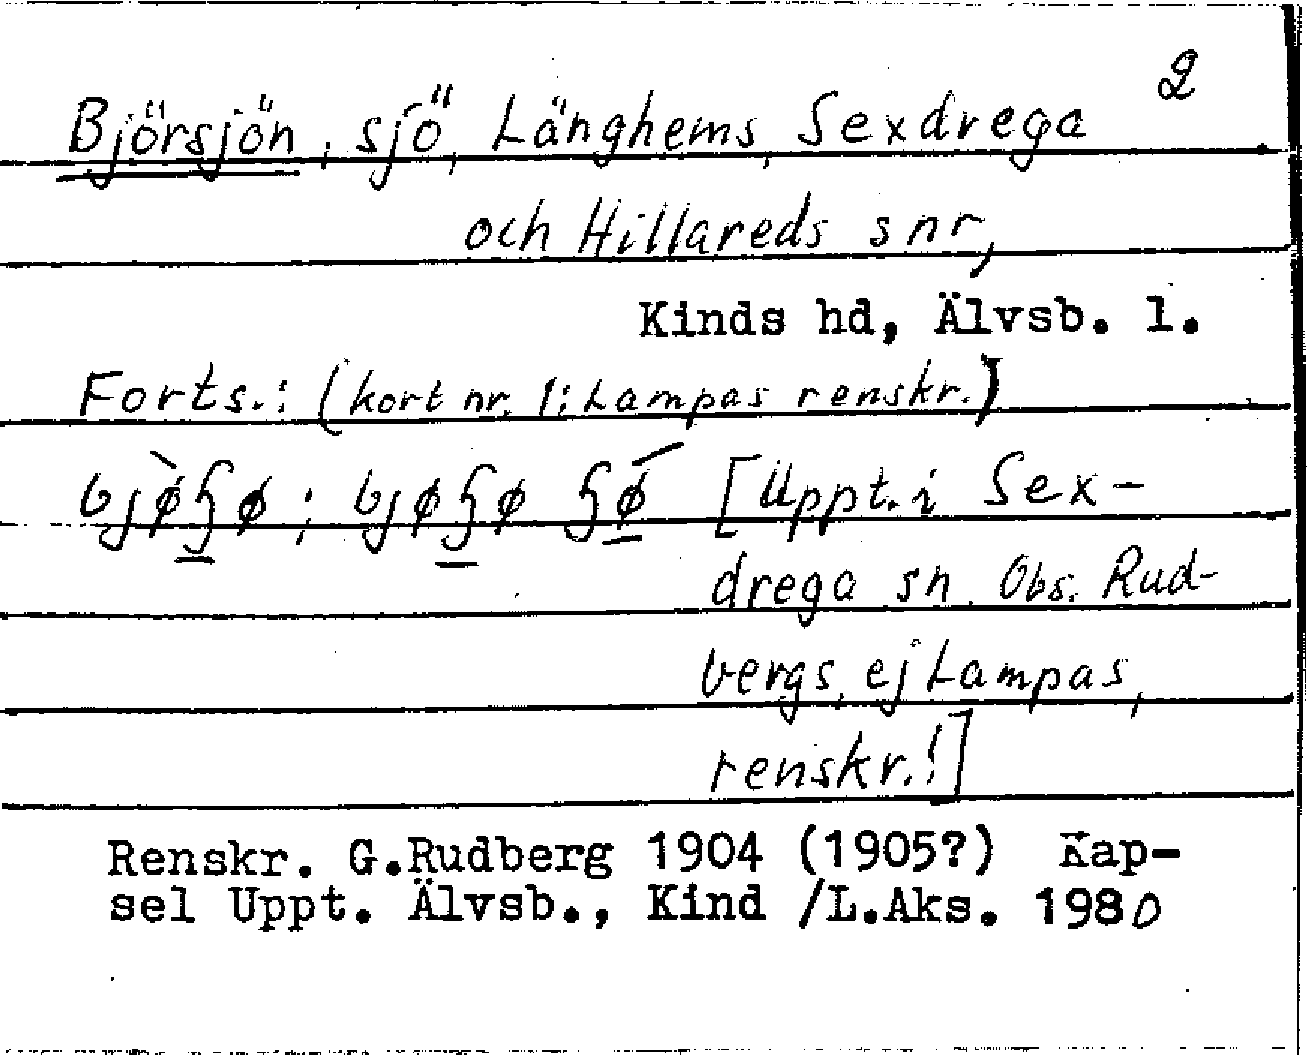 2
Björsjön, sjö, Länghems, Sexdrega
och Hillareds snr,
Kinds hd, Älvsb. l.
Forts.: (kort nr. 1: Lampas renskr.)
[Uppt. i Sex-
drega sn. Obs. Rud-
bergs, ej Lampas,
renskr.!]
Renskr. G.Rudberg 1904 (1905?) Kap-
sel Uppt. Älvsb., Kind /L.Aks. 1980